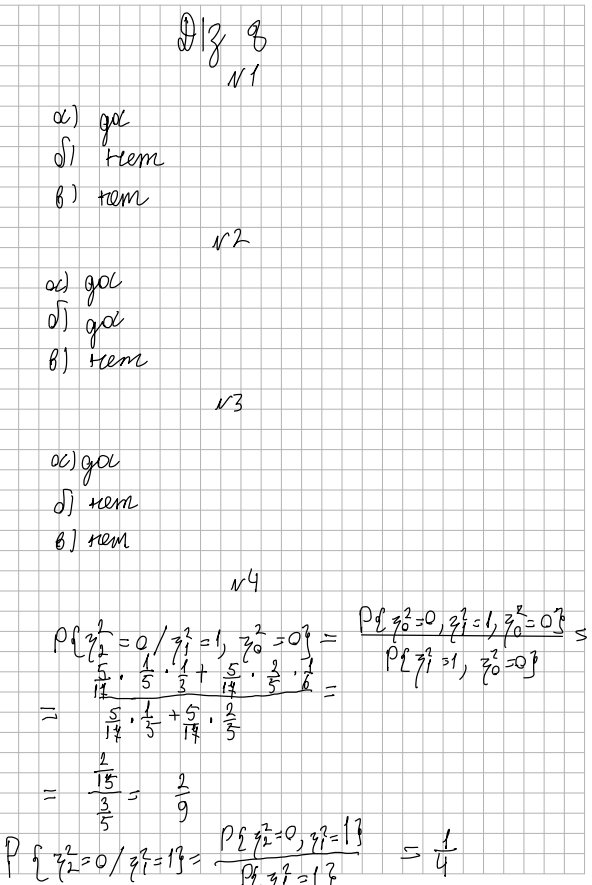 Д/з 8
№1
а) да
б) нет
в) нет
№2
а) да
б) да
в) нет
№3
а) да
б) нет
в) нет
№4
P{η₂²=0/η₁²=1, η₀²=0} = P{η₀²=0, η₁²=1, η₀²=0} / P{η₁²=1, η₀²=0} =
= (5/17 · 1/5 · 1/3 + 5/17 · 2/5 · 1/6) / (5/17 · 1/5 + 5/17 · 2/5) =
= (2/15) / (3/5) = 2/9
P{η₂²=0/η₁²=1} = P{η₂²=0, η₁²=1} / P{η₁²=1} = 1/4